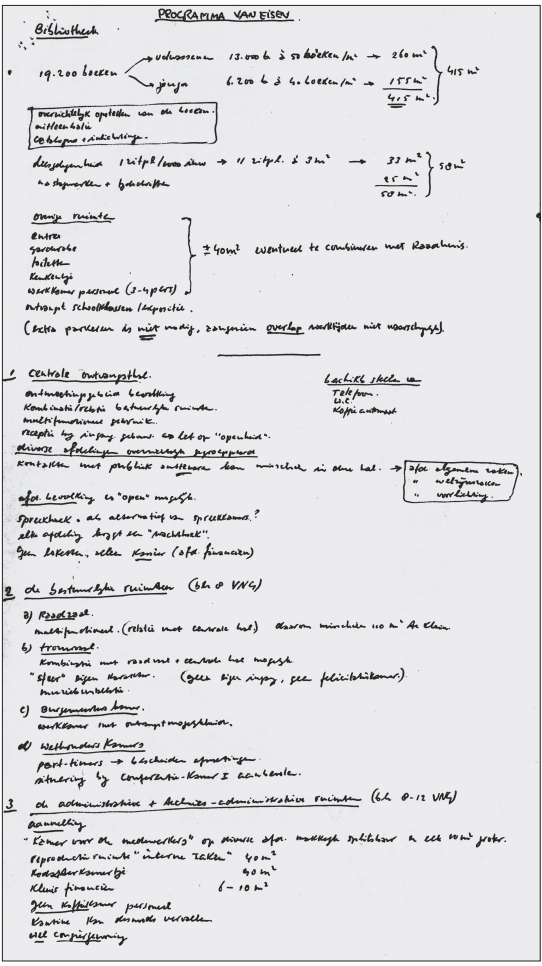 PROGRAMMA VAN EISEN.
Bibliotheek
volwassenen 13.000 b à 50 boeken/m² → 260 m²
19.200 boeken 415 m²
jeugd 6.200 b à 40 boeken/m² → 155 m²
415 m²
overzichtelijk opstellen van de boeken.
uitleenbalie
catalogus + inlichtingen
leesgelegenheid 1 zitpl/1000 inw → 11 zitpl. à 3 m² → 33 m² 58 m²
naslagwerken + tijdschriften 25 m²
58 m²
overige ruimten
entree
garderobe
toiletten
keukentje
werkkamer personeel (3-4 pers)
± 40 m² eventueel te combineren met Raadhuis.
ontvangst schoolklassen / expositie.
(extra parkeren is niet nodig, aangezien overlap werktijden niet
1 Centrale ontvangsthal.
beschikb stellen van
ontmoetingsgebied bevolking
Telefoon.
kombinatie/relatie bestuurlijke ruimte.
W.C.
multifunctioneel gebruik.
Koffie automaat
receptie bij ingang gebouw let op "openheid".
diverse afdelingen overzichtelijk gegroepeerd
kontakten met publiek kan misschien in deze hal. → afd. algemene zaken.
" welzijnszaken
" voorlichting.
afd. bevolking is "open" mogelijk.
spreekhoek als alternatief van spreekkamers.?
elke afdeling krijgt een "wachthoek".
geen loketten, alleen kassier (afd. financien)
2 de bestuurlijke ruimten (blz 8 VNG)
a) Raadzaal.
multifunctioneel. (relatie met centrale hal) daarom misschien 110 m² te klein.
b) trouwzaal.
kombinatie met raadzaal + centrale hal mogelijk
"sfeer" eigen karakter. (geen eigen ingang, geen felicitatiekamer).
c) Burgemeesterskamer.
werkkamer met ontvangstmogelijkheid.
d) wethouderskamers
part-timers → bescheiden afmetingen.
situering bij conferentie-kamer I aanbevolen.
3 de administratieve + technies-administratieve ruimten (blz 8-12 VNG)
aanvulling
"Kamer voor de medewerkers" op diverse afd. makkelijk splitsbaar en elk 10 m² groter.
reproductie ruimte "interne zaken" 40 m²
Kadasterkamertje
Kluis financien 6-10 m²
geen koffiekamer personeel
kantine kan desnoods vervallen
wel conciergewoning